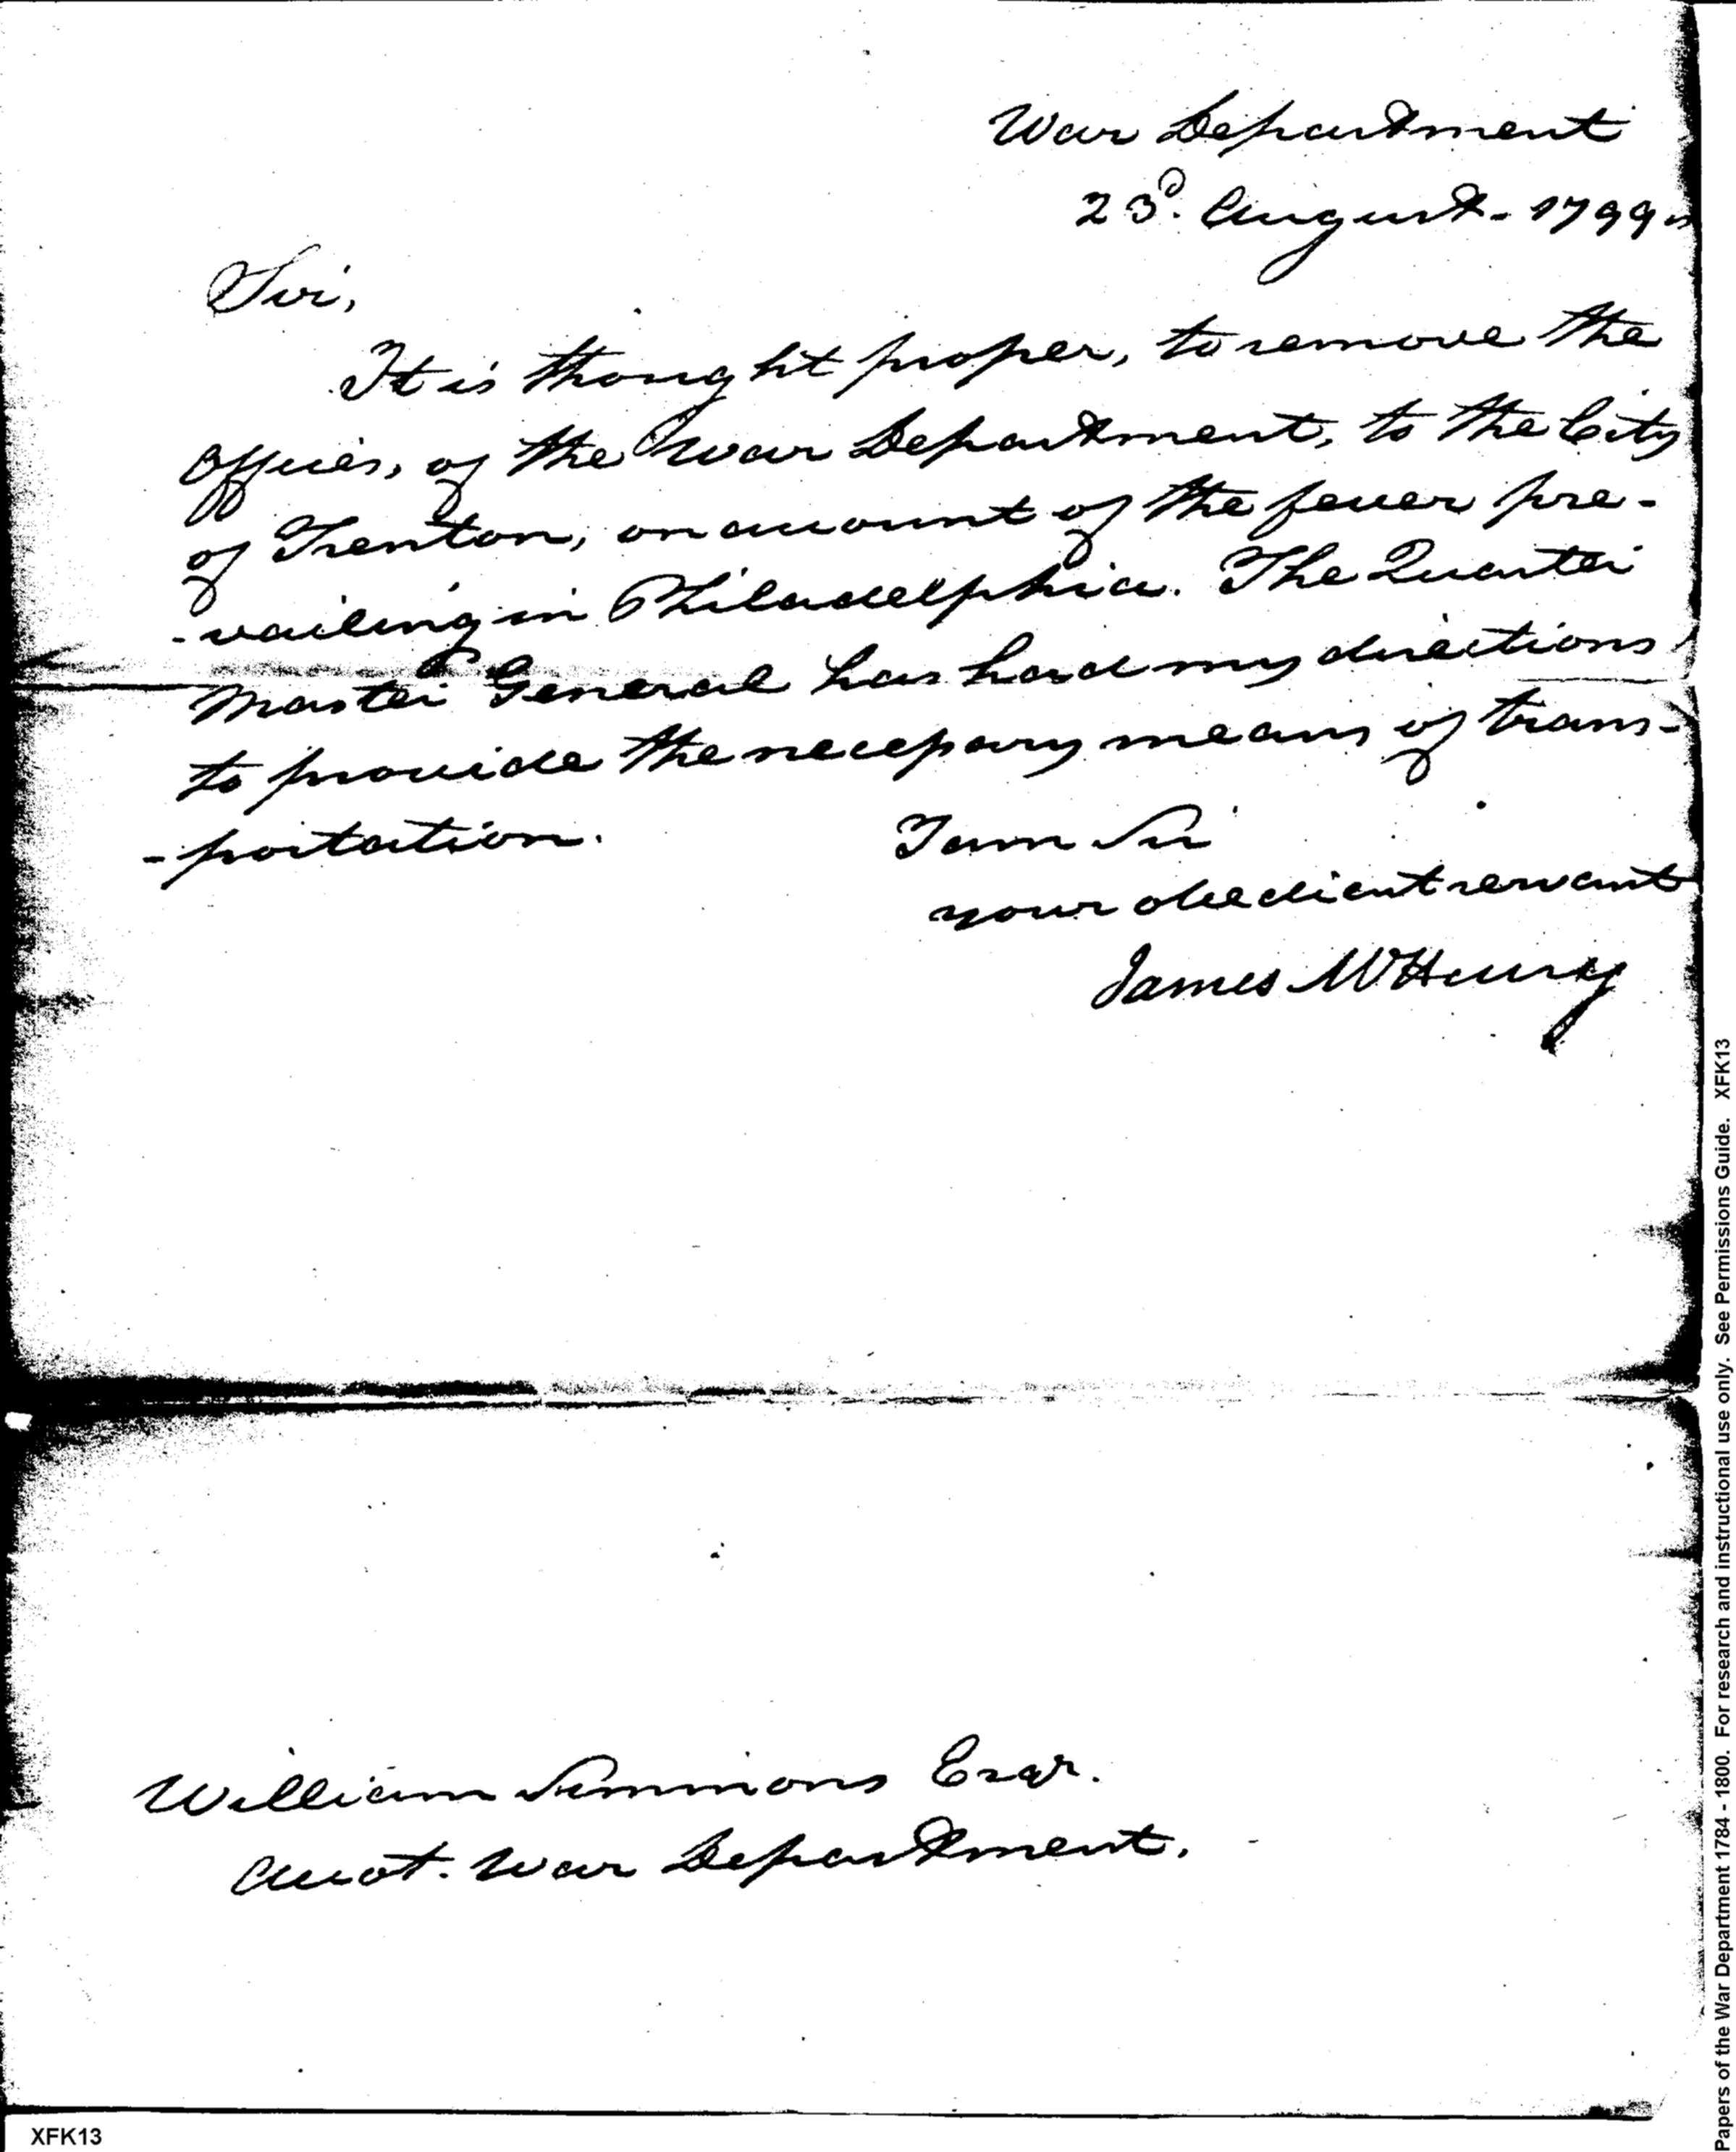 War Department
23d. August. 1799
Sir,
It is thought proper, to remove the
Offices, of the War Department, to the City
of Trenton, on account of the fever pre-
-vailing in Philadelphia. The Quarter
Master General has had my directions
to provide the necessary means of trans-
-portation.
I am Sir
your obedient servant
James McHenry
William Simmons Esqr.
Accot. War Department.
XFK13
Papers of the War Department 1784 - 1800. For research and instructional use only. See Permissions Guide. XFK13